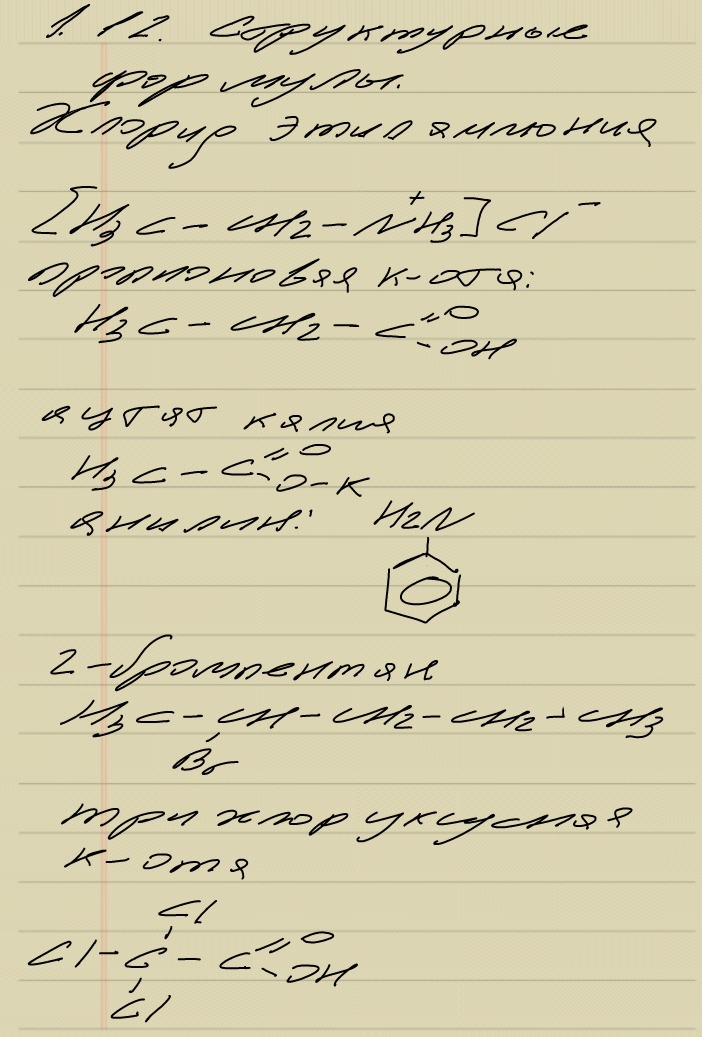 1. 12. Структурные
формулы.
Хлорид этиламмония
[H3C - CH2 - N+H3] Cl-
пропановая к-ота:
H3C - CH2 - C =O
-OH
ацетат калия
H3C - C =O
O-K
анилин: H2N
2-бромпентан
H3C - CH - CH2 - CH2 - CH3
Br
трихлоруксусная
к-ота
Cl
Cl - C - C =O
-OH
Cl